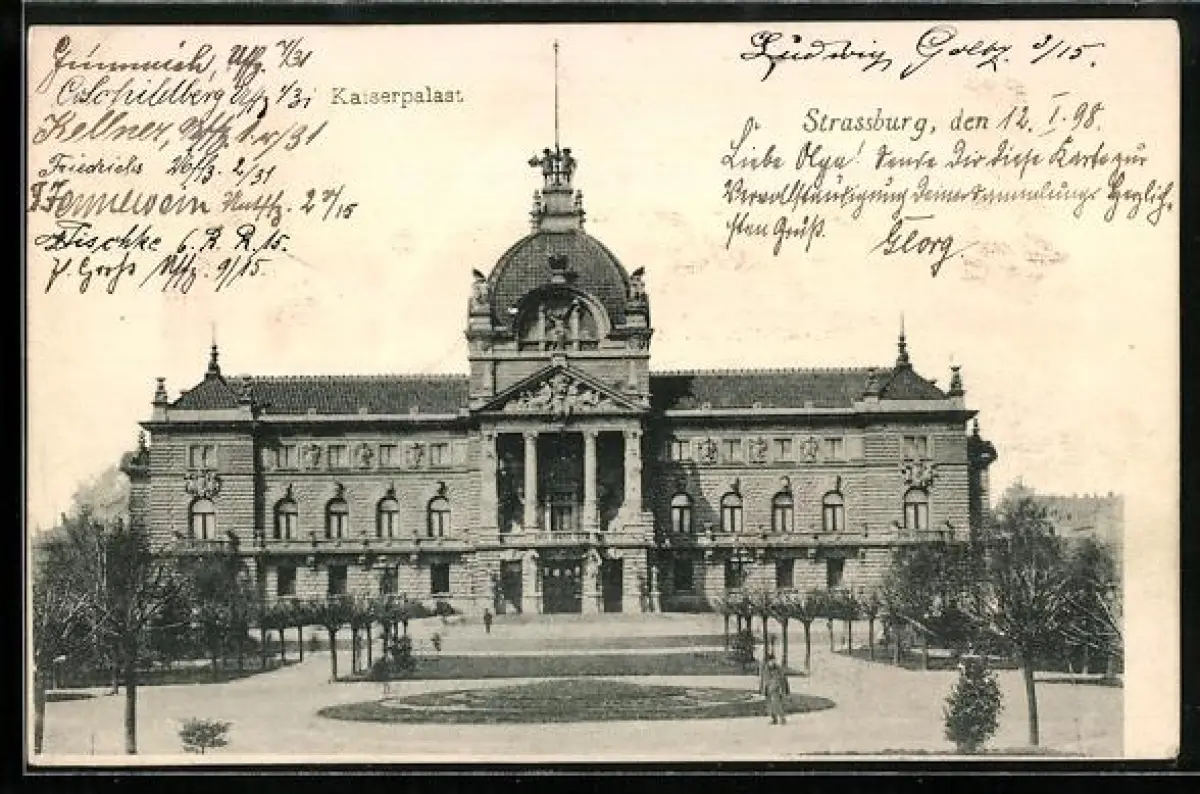 Jimmich, Uffz. 7/31
C. Schildberg Uffz 1/31
Kellner, Uffz. 1. 31
Friedrichs Uffz. 2/31
Fennewein Untffz. 2 15
Tischke 6. R. R. 15.
P. Groß Uffz. 9/15.
Kaiserpalast
Ludwig Goltz. 3/15.
Strassburg, den 12. I. 98.
Liebe Olga! Sende Dir diese Karte zur
Vervollständigung Deiner Sammlung. Herzlich-
sten Gruß. Georg